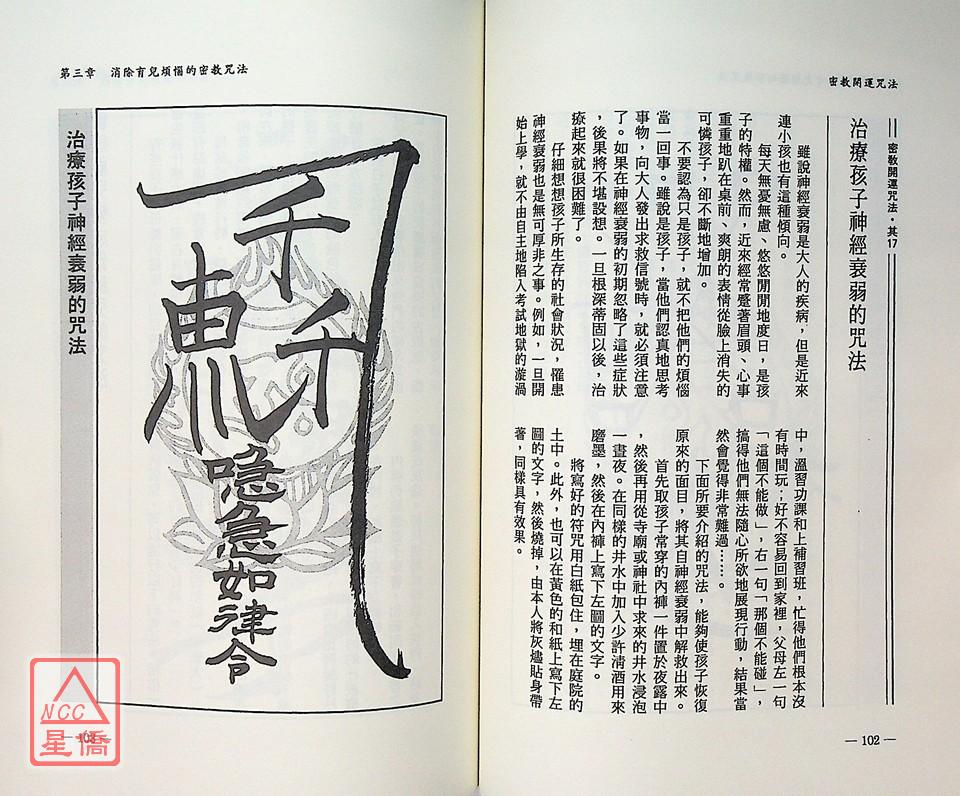 密教開運咒法
密教開運咒法・其17
治療孩子神經衰弱的咒法
雖說神經衰弱是大人的疾病，但是近來
連小孩也有這種傾向。
每天無憂無慮、悠悠閒閒地度日，是孩
子的特權。然而，近來經常蹙著眉頭、心事
重重地趴在桌前、爽朗的表情從臉上消失的
可憐孩子，卻不斷地增加。
不要認為只是孩子，就不把他們的煩惱
當一回事。雖說是孩子，當他們認真地思考
事物，向大人發出求救信號時，就必須注意
了。如果在神經衰弱的初期忽略了這些症狀
，後果將不堪設想。一旦根深蒂固以後，治
療起來就很困難了。
仔細想想孩子所生存的社會狀況，罹患
神經衰弱也是無可厚非之事。例如，一旦開
始上學，就不由自主地陷入考試地獄的漩渦
中，溫習功課和上補習班，忙得他們根本沒
有時間玩；好不容易回到家裡，父母左一句
「這個不能做」，右一句「那個不能碰」，
搞得他們無法隨心所欲地展現行動，結果當
然會覺得非常難過……。
下面所要介紹的咒法，能夠使孩子恢復
原來的面目，將其自神經衰弱中解救出來。
首先取孩子常穿的內褲一件置於夜露中
，然後再用從寺廟或神社中求來的井水浸泡
一晝夜。在同樣的井水中加入少許清酒用來
磨墨，然後在內褲上寫下左圖的文字。
將寫好的符咒用白紙包住，埋在庭院的
土中。此外，也可以在黃色的和紙上寫下左
圖的文字，然後燒掉，由本人將灰燼貼身帶
著，同樣具有效果。
— 102 —
第三章　消除育兒煩惱的密教咒法
千
千千
喼急如律令
治療孩子神經衰弱的咒法
— 103 —
NCC
星僑